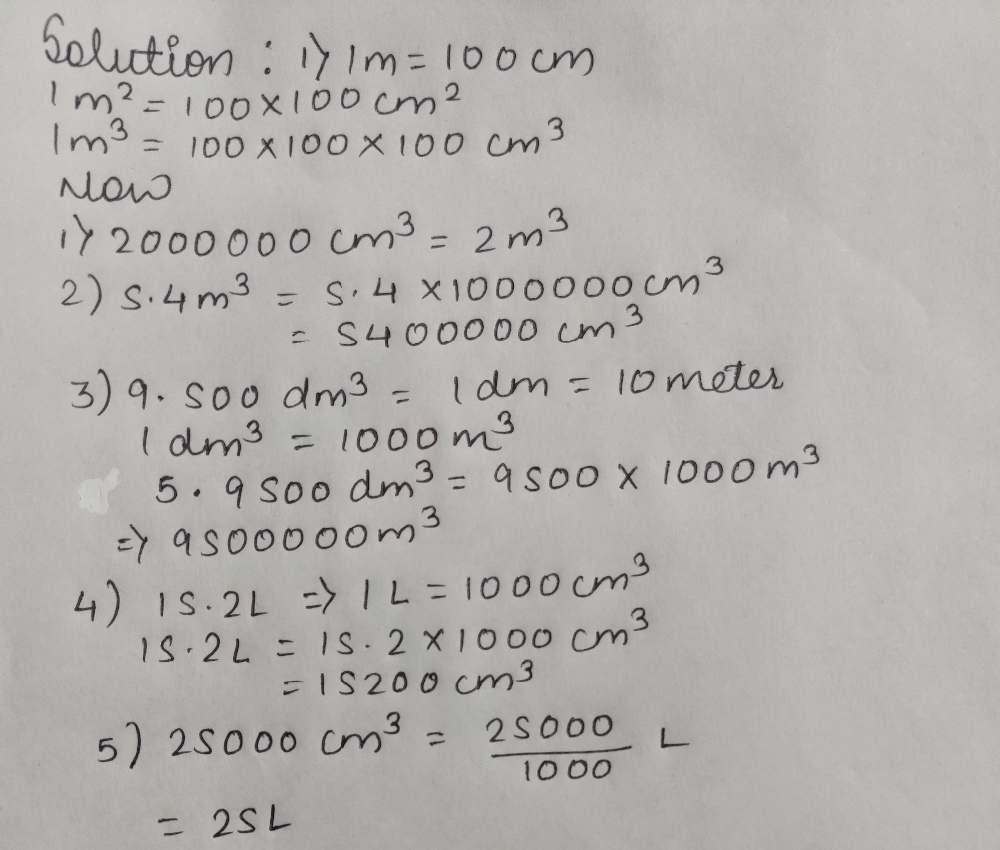 Solution : 1) 1m = 100 cm
1 m² = 100 × 100 cm²
1m³ = 100 × 100 × 100 cm³
Now
1) 2000000 cm³ = 2 m³
2) 5.4 m³ = 5.4 × 1000000 cm³
= 5400000 cm³
3) 9.500 dm³ = 1 dm = 10 meter
1 dm³ = 1000 m³
5.9500 dm³ = 9500 × 1000 m³
=> 9500000 m³
4) 15.2L => 1 L = 1000 cm³
15.2L = 15.2 × 1000 cm³
= 15200 cm³
5) 25000 cm³ = 25000/1000 L
= 25L